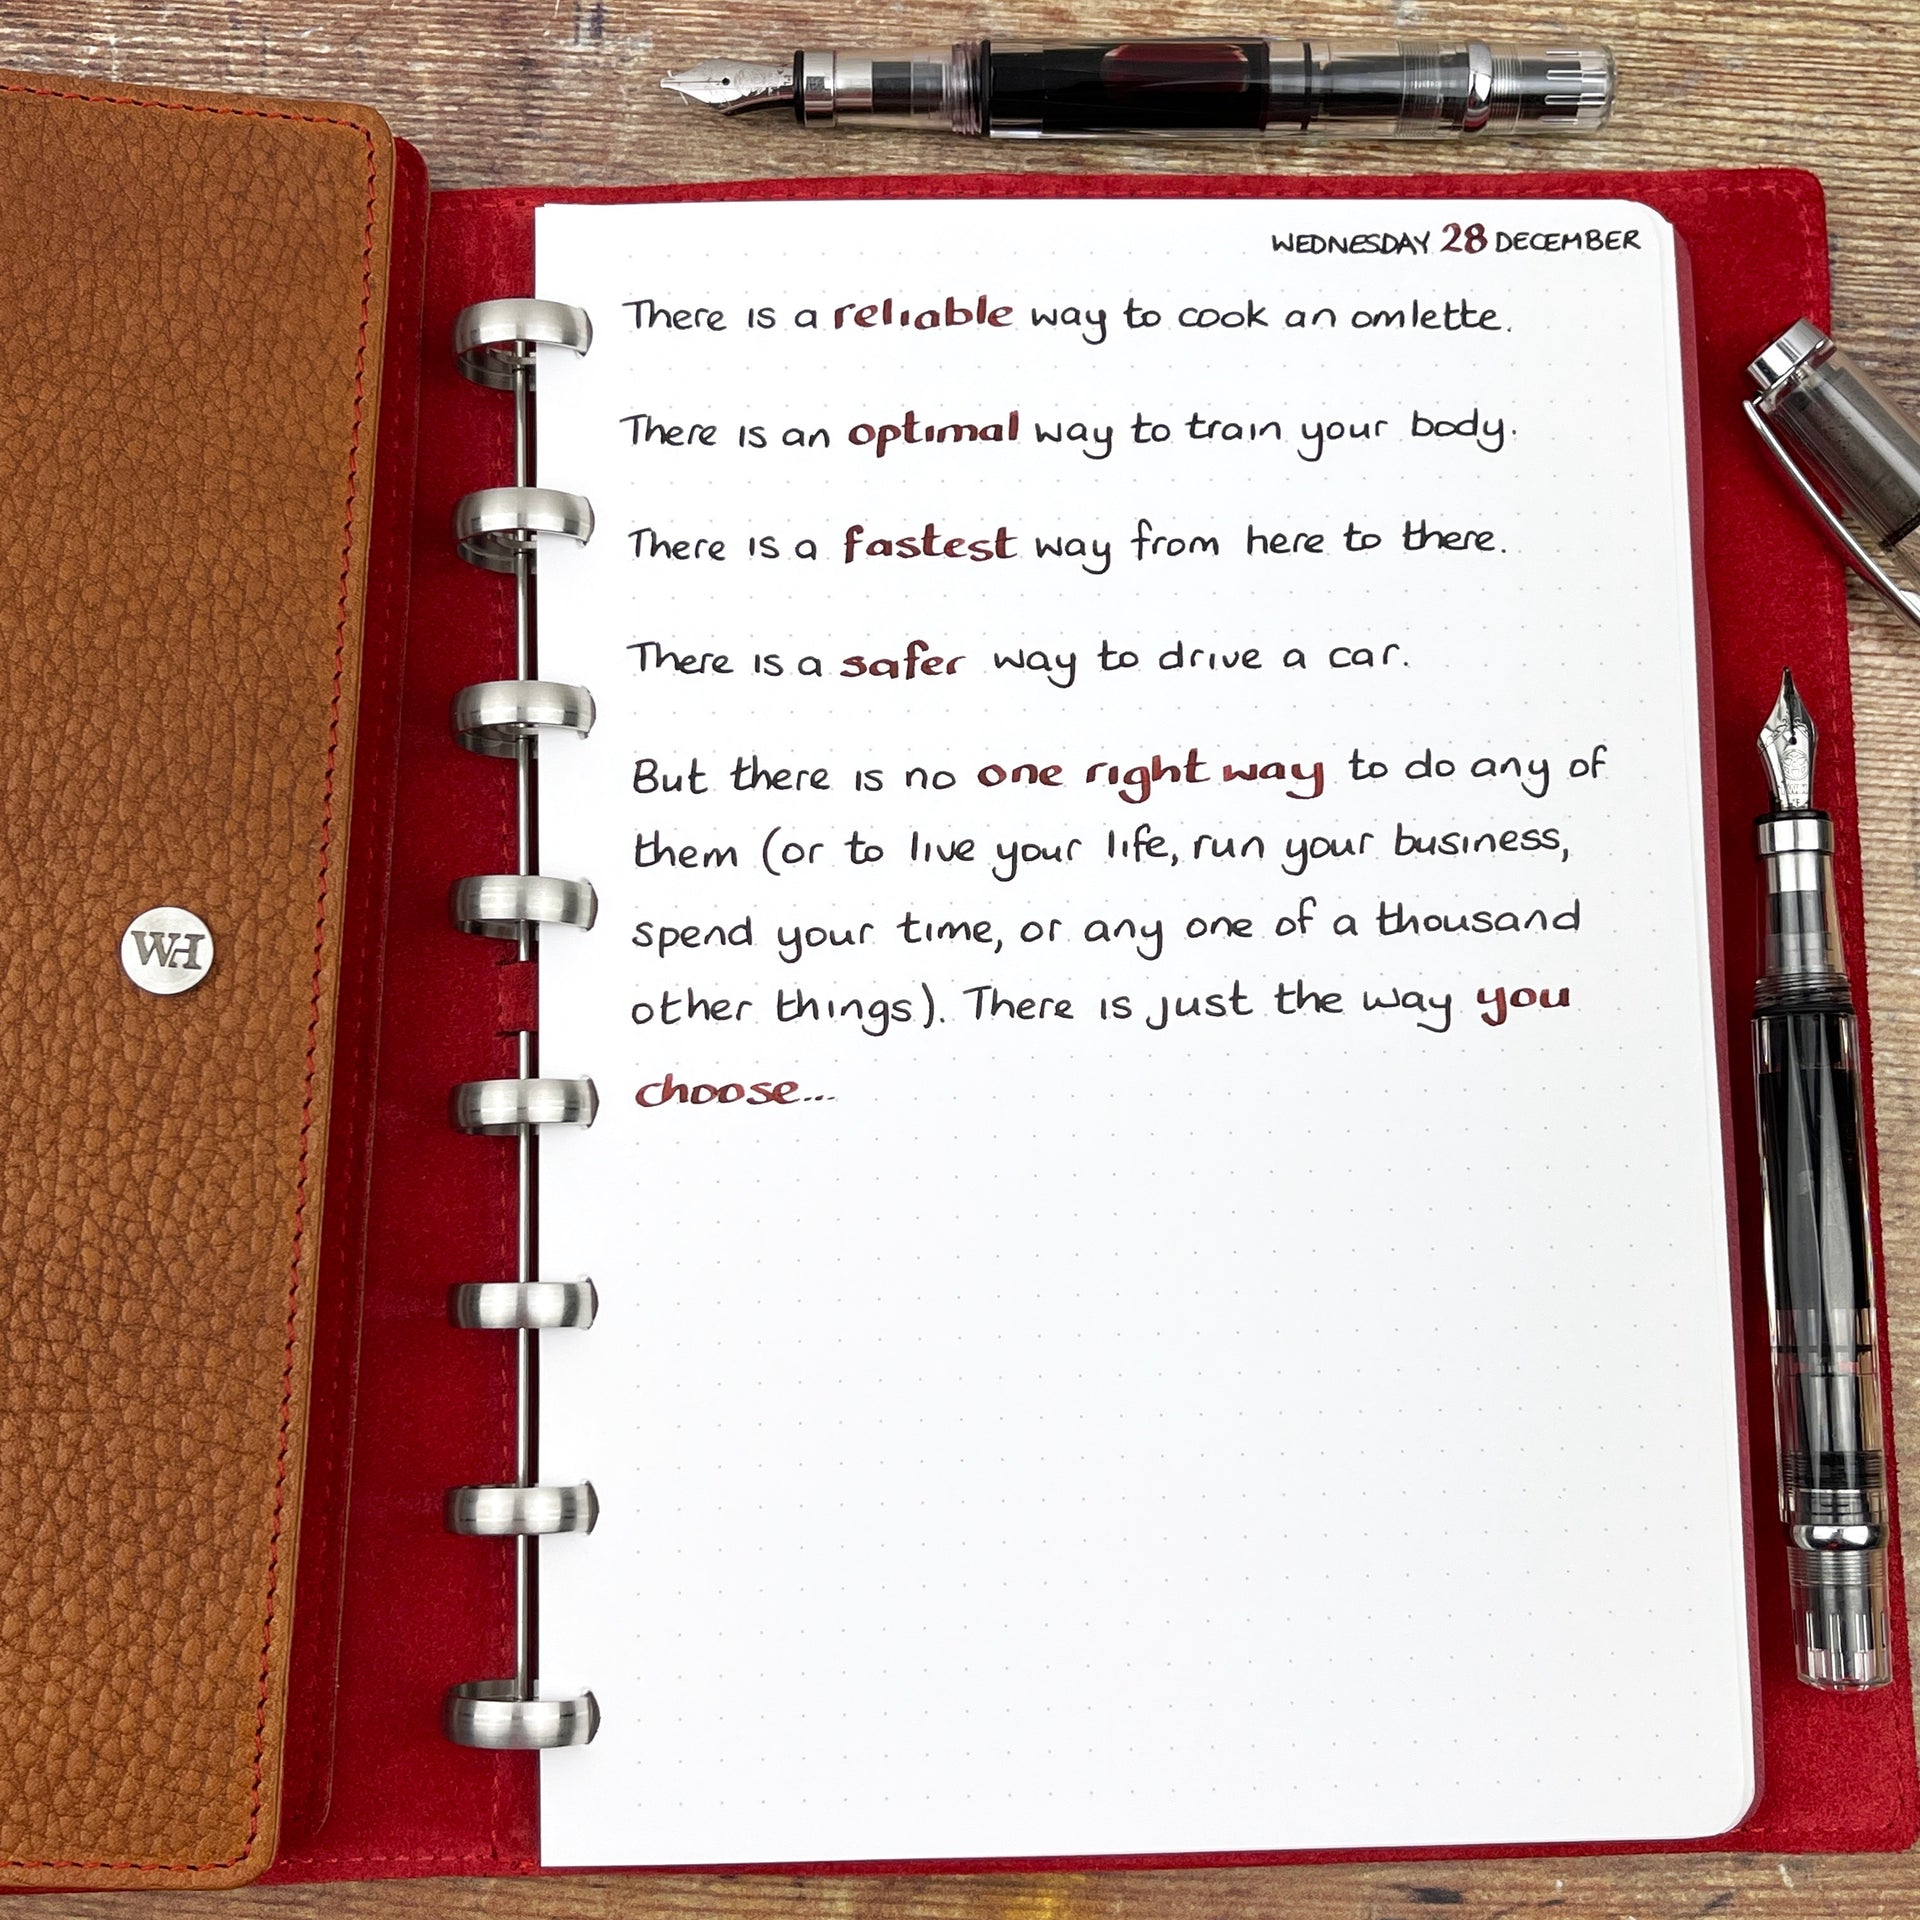 WEDNESDAY 28 DECEMBER
There is a reliable way to cook an omlette.
There is an optimal way to train your body.
There is a fastest way from here to there.
There is a safer way to drive a car.
But there is no one right way to do any of
them (or to live your life, run your business,
spend your time, or any one of a thousand
other things). There is just the way you
choose...
WH